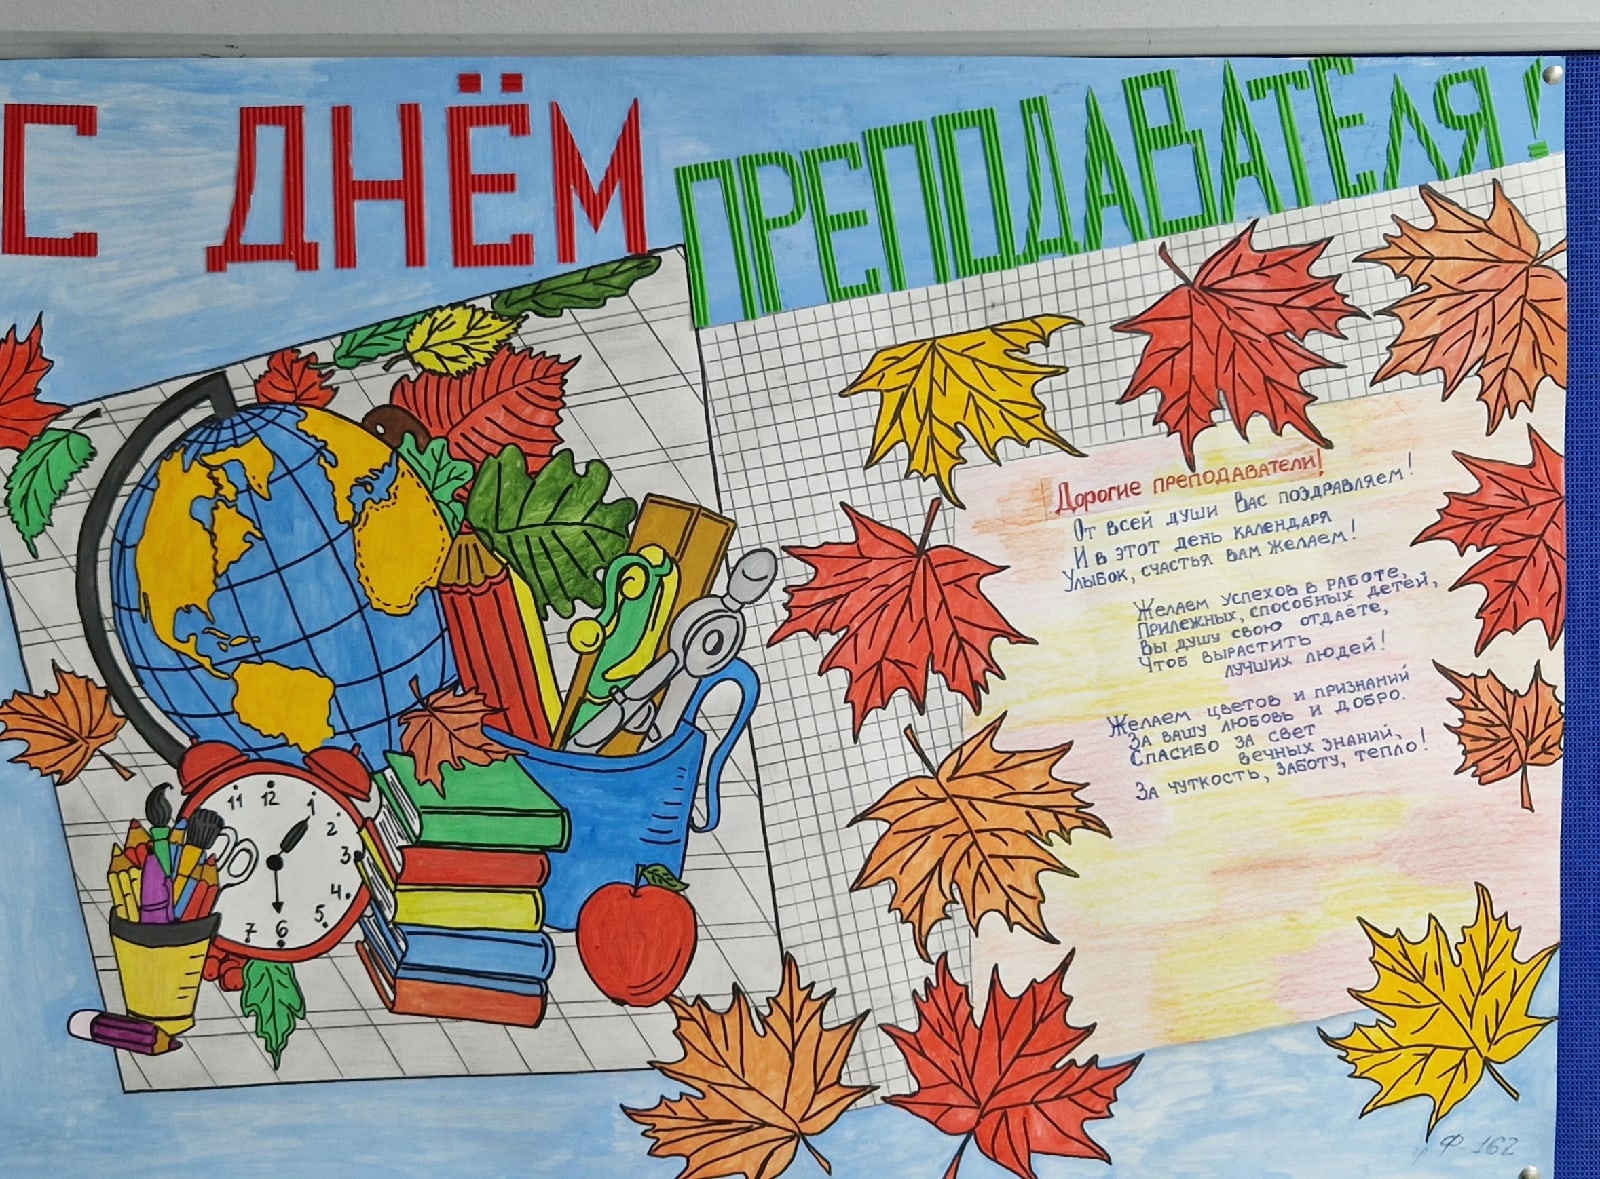 С ДНЁМ
ПРЕПОДАВАТЕЛЯ!
Дорогие преподаватели!
От всей души Вас поздравляем!
И в этот день календаря
Улыбок, счастья вам желаем!
Желаем успехов в работе,
Прилежных, способных детей,
Вы душу свою отдаёте,
Чтоб вырастить
лучших людей!
Желаем цветов и признаний
За вашу любовь и добро.
Спасибо за свет
вечных знаний,
За чуткость, заботу, тепло!
11 12 1
2
3
4
5
6
7
Ф-162